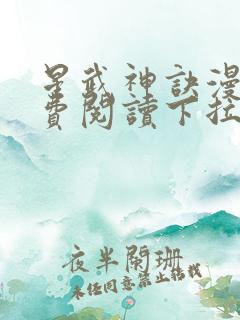 星武神訣漫
費閱讀下拉
夜半闌珊
未經同意禁止轉載